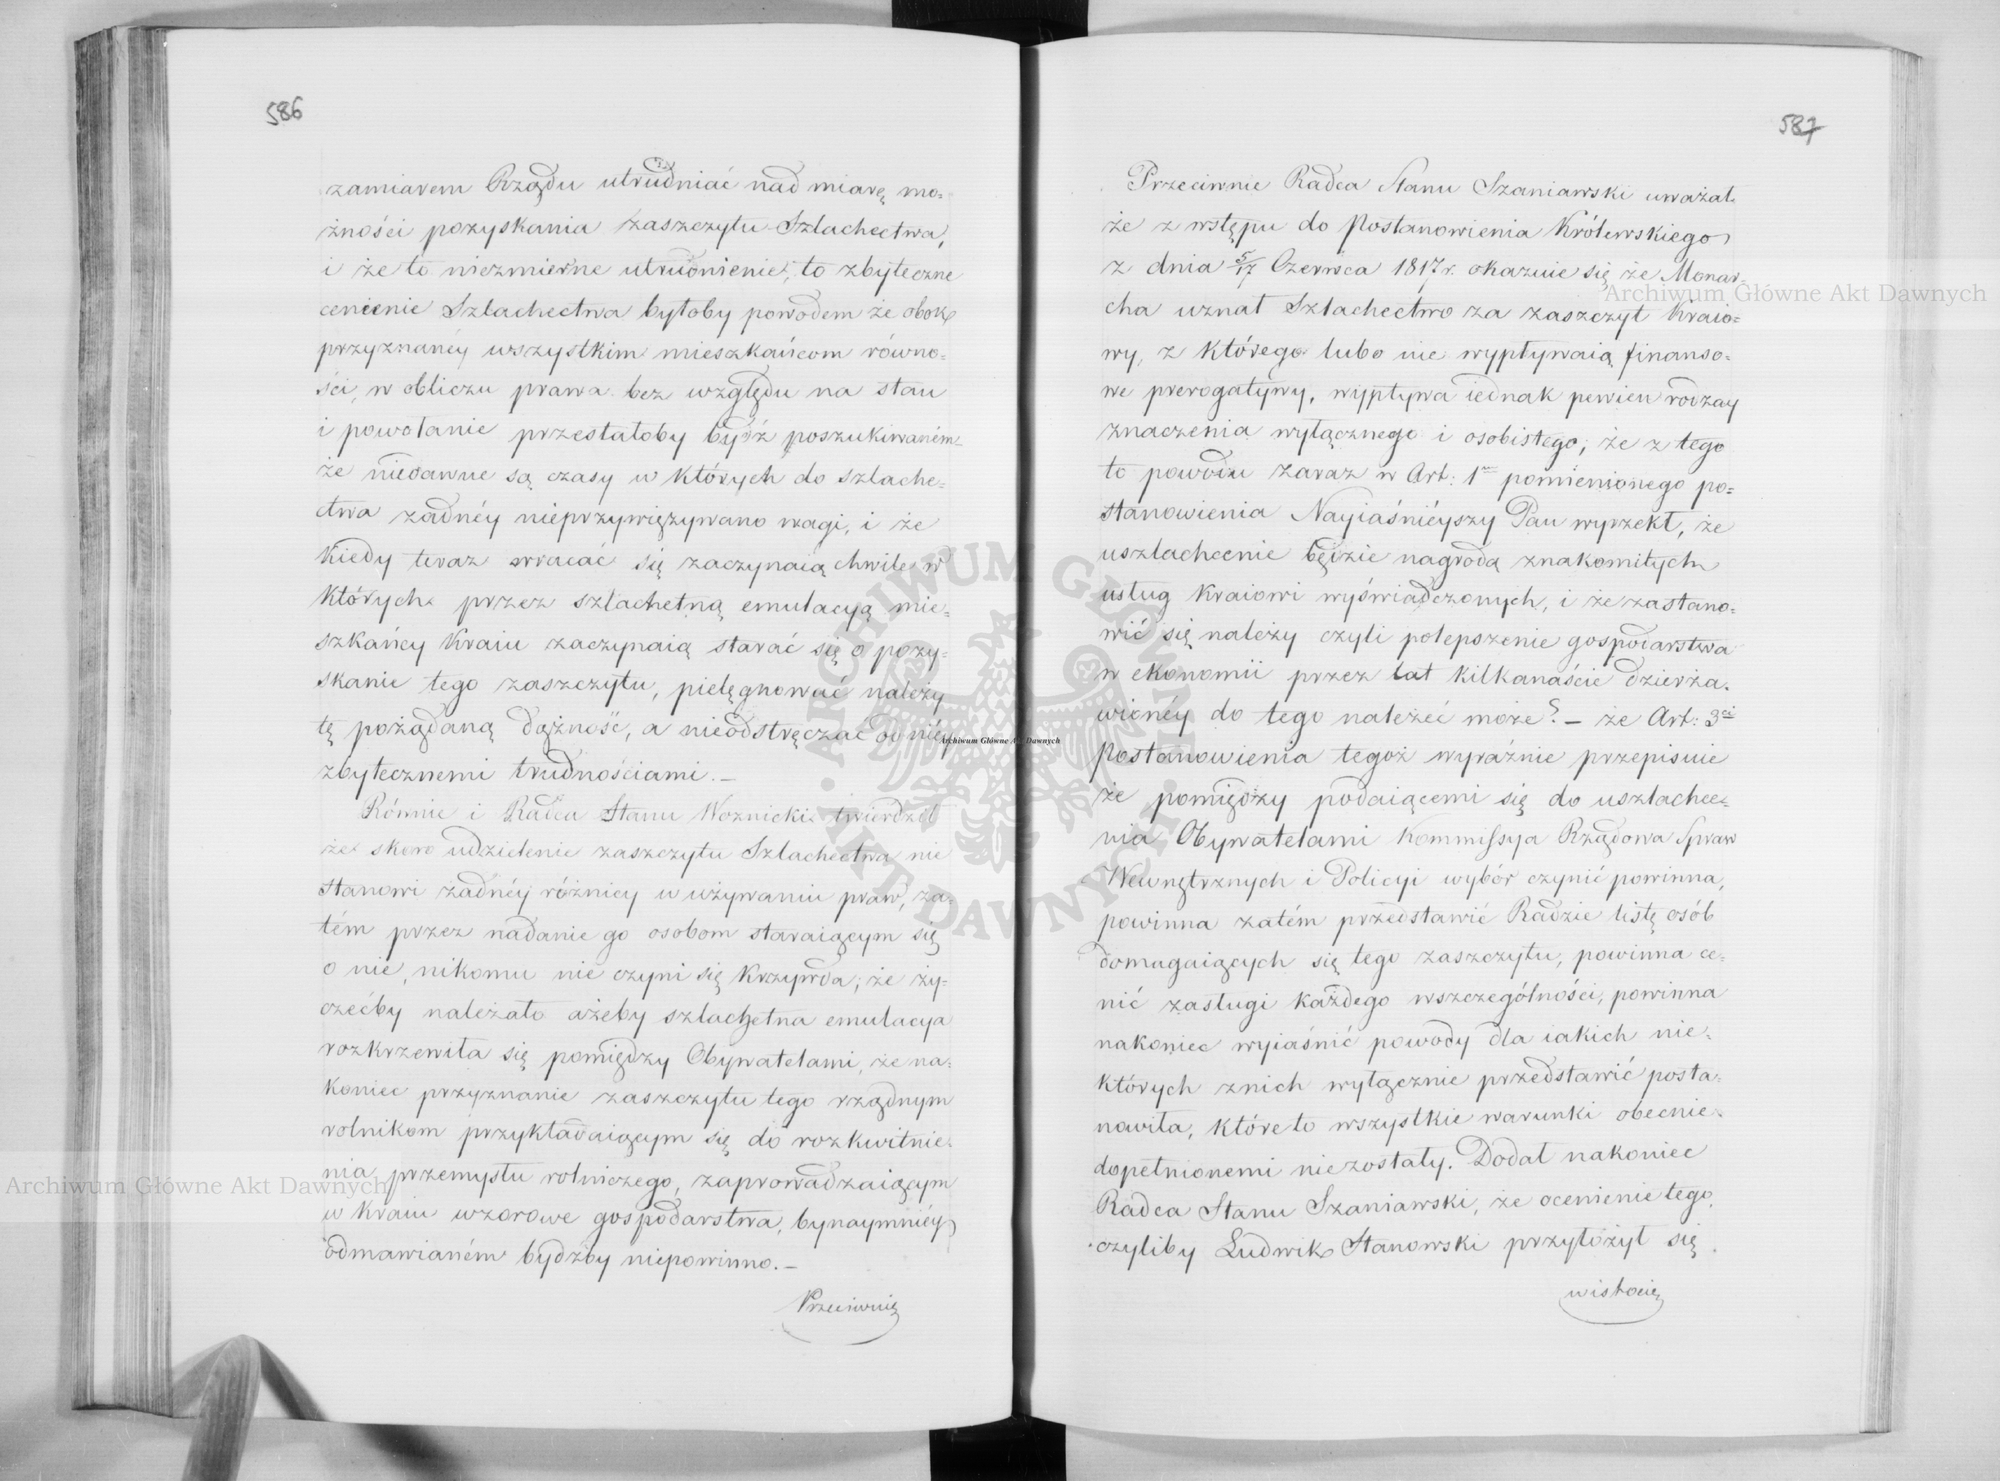 586
zamiarem Rządu utrudniać nad miarę mo=
żności pozyskania zaszczytu Szlachectwa,
i że to niezmierne utrudnienie, to zbyteczne
cenienie Szlachectwa byłoby powodem że obok
przyznanéy wszystkim mieszkańcom równo=
ści, w obliczu prawa bez względu na stan
i powołanie przestałoby bydź poszukiwaném
że niedawne są czasy w których do szlache=
ctwa żadnéy nieprzywięzywano wagi, i że
kiedy teraz wracać się zaczynaią chwile w
których przez szlachetną emulacyą mie=
szkańcy Kraiu zaczynaią starać się o pozy=
skanie tego zaszczytu, pielęgnować należy
tę pożądaną dążność, a nieodstręczać od niéy
zbytecznemi trudnościami. —
Równie i Radca Stanu Woznicki twierdził
że skoro udzielenie zaszczytu Szlachectwa nie
stanowi żadnéy różnicy w używaniu praw, za=
tém przez nadanie go osobom staraiącym się
o nie, nikomu nie czyni się Krzywda; że ży=
czećby należało ażeby szlachetna emulacya
rozkrzewiła się pomiędzy Obywatelami, że na=
koniec przyznanie zaszczytu tego rządnym
rolnikom przykładaiącym się do rozkwitnie=
nia przemysłu rolniczego, zaprowadzaiącym
w Kraiu wzorowe gospodarstwa, bynaymniéy
odmawianém bydźby niepowinno. —
Przeciwnie
587
Przeciwnie Radca Stanu Szaniawski uważał
że z wstępu do Postanowienia Królewskiego
z dnia 5/17 Czerwca 1817 r. okazuie się że Monar=
cha uznał Szlachectwo za zaszczyt Kraio=
wy, z którego lubo nie wypływaią finanso=
we prerogatywy, wypływa iednak pewien rodzay
znaczenia wyłącznego i osobistego, że z tego
to powodu zaraz w Art: 1m pomienionego po=
stanowienia Nayiaśniéyszy Pan wyrzekł, że
uszlachcenie będzie nagrodą znakomitych
usług Kraiowi wyświadczonych, i że zastano=
wić się należy czyli polepszenie gospodarstwa
w ekonomii przez lat kilkanaście dzierża=
wionéy do tego należeć może? — że Art: 3ci
Postanowienia tegoż wyraźnie przepisuie
że pomiędzy podaiącemi się do uszlachce=
nia Obywatelami Kommissya Rządowa Spraw
Wewnętrznych i Policyi wybór czynić powinna,
powinna zatém przedstawić Radzie listę osób
domagaiących się tego zaszczytu, powinna ce=
nić zasługi każdego wszczególności, powinna
nakoniec wyiaśnić powody dla iakich nie=
których znich wyłącznie przedstawić posta=
nowiła, które to wszystkie warunki obecnie
dopełnionemi niezostały. Dodał nakoniec
Radca Stanu Szaniawski, że ocenienie tego,
czyliby Ludwik Stanowski przyłożył się
wistocie
Archiwum Główne Akt Dawnych
Archiwum Główne Akt Dawnych
Archiwum Główne Akt Dawnych
ARCHIWUM GŁÓWNE AKT DAWNYCH